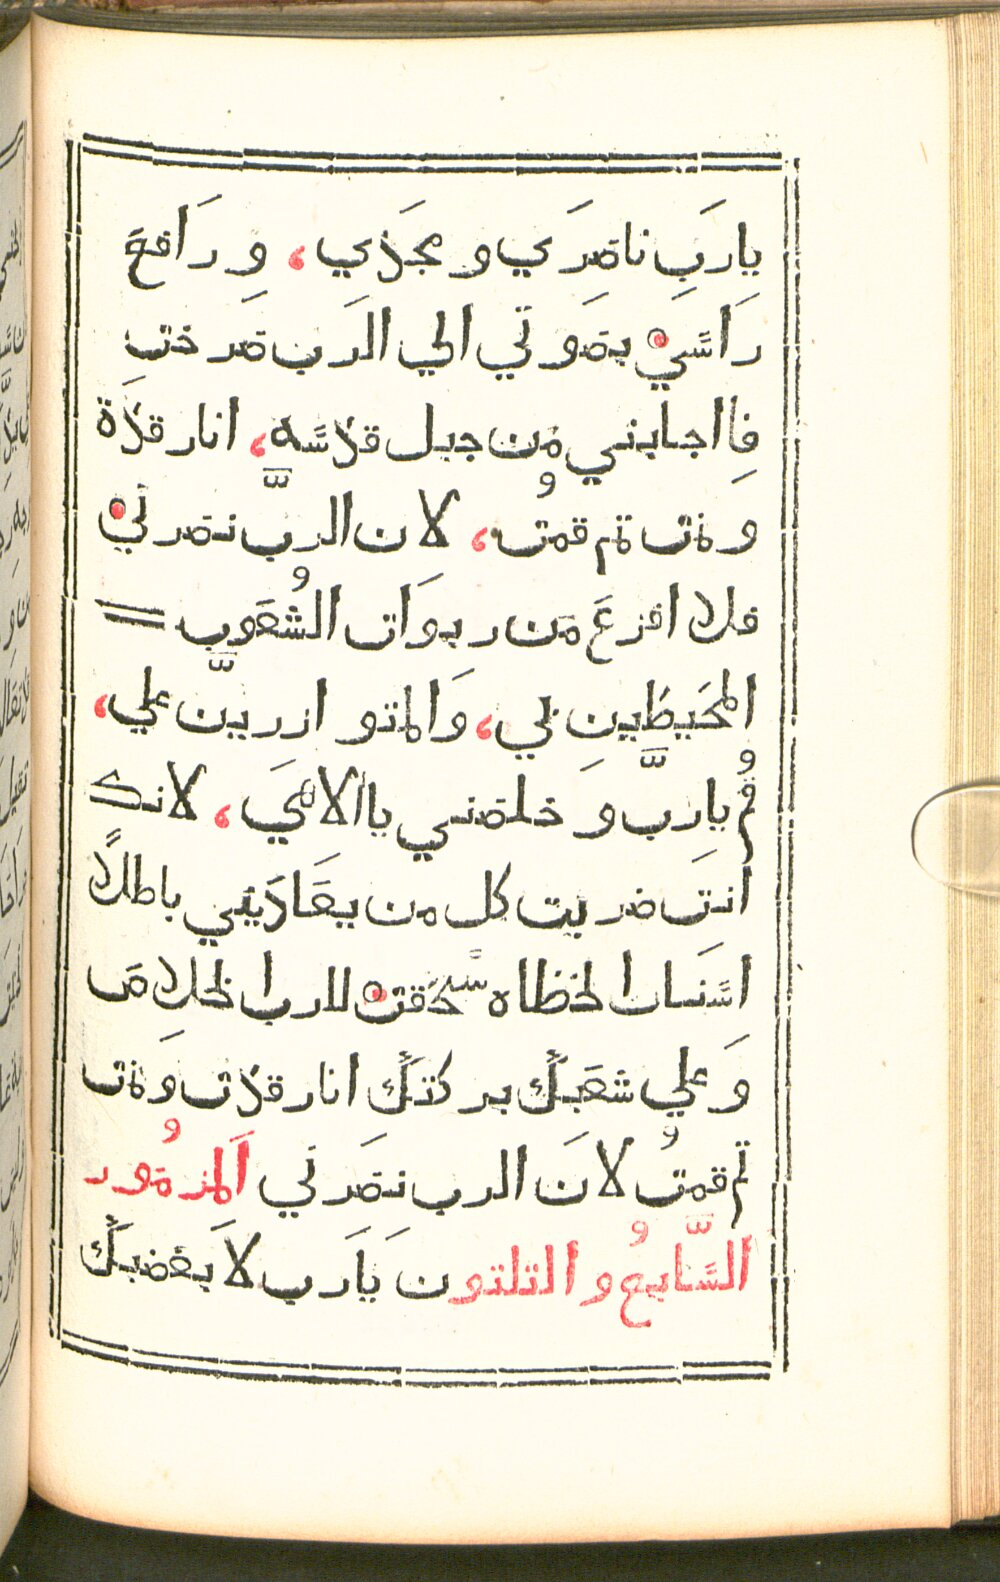 يارَبِ ناصِرَي و مجَدي، وِ رَافعَ
رَاسَي بصَوتي الي الرَب صَرختِ
فِااجابني مُن جبل قدسَه، انا رقدَة
و نمَت تم قمتُ، لان الرب نصَرني
فلا افزعَ مَن ربوَات الشُعَوبِ
المُحَيطَيينِ بي، وَالمتوازريِّن علي،
قُم يارِبّ و خلصَني ياالاهيَ، لانك
انتَ ضربت كل من يعَادَيني باطلاً
اسَنَان الخطاه سَحَقت للرب الخلاِصَ
وَ علي شعَبَك بركتَك انا رقدت و نمَت
تم قمتُ لانَ الرب نصَرني اَلمزمُور
السَّابعُ و التلتون يَارَب لاَ بغَضبَك